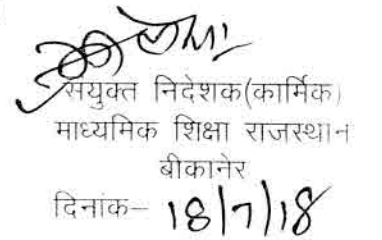 संयुक्त निदेशक(कार्मिक)
माध्यमिक शिक्षा राजस्थान
बीकानेर
दिनांक– 18/7/18